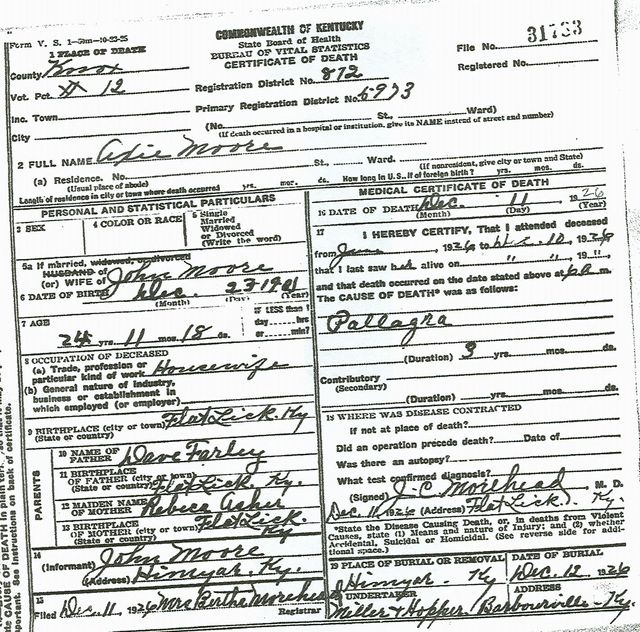 Form V. S. 1-50m-10-23-25
COMMONWEALTH OF KENTUCKY
State Board of Health
BUREAU OF VITAL STATISTICS
CERTIFICATE OF DEATH
File No. 31733
Registered No.
1 PLACE OF DEATH
County Knox
Vot. Pct. 12
Inc. Town
City
Registration District No. 872
Primary Registration District No. 5973
(No. St., Ward)
(If death occurred in a hospital or institution, give its NAME instead of street and number)
2 FULL NAME Axie Moore
(a) Residence. No. St., Ward.
(Usual place of abode) (If nonresident, give city or town and State)
Length of residence in city or town where death occurred yrs. mos. ds. How long in U. S., if of foreign birth? yrs. mos. ds.
PERSONAL AND STATISTICAL PARTICULARS
3 SEX
4 COLOR OR RACE
5 Single
Married
Widowed
or Divorced
(Write the word)
5a If married, widowed, or divorced
HUSBAND of
(or) WIFE of John Moore
6 DATE OF BIRTH Dec. 23-1901
(Month) (Day) (Year)
7 AGE
24 yrs. 11 mos. 18 ds.
IF LESS than 1
day hrs
or min?
8 OCCUPATION OF DECEASED
(a) Trade, profession or
particular kind of work Housewife
(b) General nature of industry,
business or establishment in
which employed (or employer)
9 BIRTHPLACE (city or town) Flat Lick, Ky
(State or country)
PARENTS
10 NAME OF
FATHER Dave Farley
11 BIRTHPLACE
OF FATHER (city or town) Flat Lick, Ky.
(State or country)
12 MAIDEN NAME
OF MOTHER Rebeca Asher
13 BIRTHPLACE
OF MOTHER (city or town) Flat Lick, Ky.
(State or country)
14
(Informant) John Moore
(Address) Himyar, Ky.
15
Filed Dec. 11, 1926 Mrs Bertha Morehead
Registrar
MEDICAL CERTIFICATE OF DEATH
16 DATE OF DEATH Dec. 11 1926
(Month) (Day) (Year)
17 I HEREBY CERTIFY, That I attended deceased
from June, 1926 to Dec. 10, 1926
that I last saw her alive on " " , 19 "
and that death occurred on the date stated above at m.
The CAUSE OF DEATH* was as follows:
Pallagra
(Duration) 3 yrs. mos. ds.
Contributory
(Secondary)
(Duration) yrs. mos. ds.
18 WHERE WAS DISEASE CONTRACTED
If not at place of death?
Did an operation precede death? Date of
Was there an autopsy?
What test confirmed diagnosis?
(Signed) J. C. Morehead M. D.
Dec 11, 1926 (Address) Flat Lick, Ky.
*State the Disease Causing Death, or, in deaths from Violent
Causes, state (1) Means and nature of Injury; and (2) whether
Accidental, Suicidal or Homicidal. (See reverse side for addi-
tional space.)
19 PLACE OF BURIAL OR REMOVAL
Himyar Ky
DATE OF BURIAL
Dec. 12 1926
20 UNDERTAKER
Miller & Hopper
ADDRESS
Barbourville-Ky.
CAUSE OF DEATH in plain
See instructions on back of certificate.